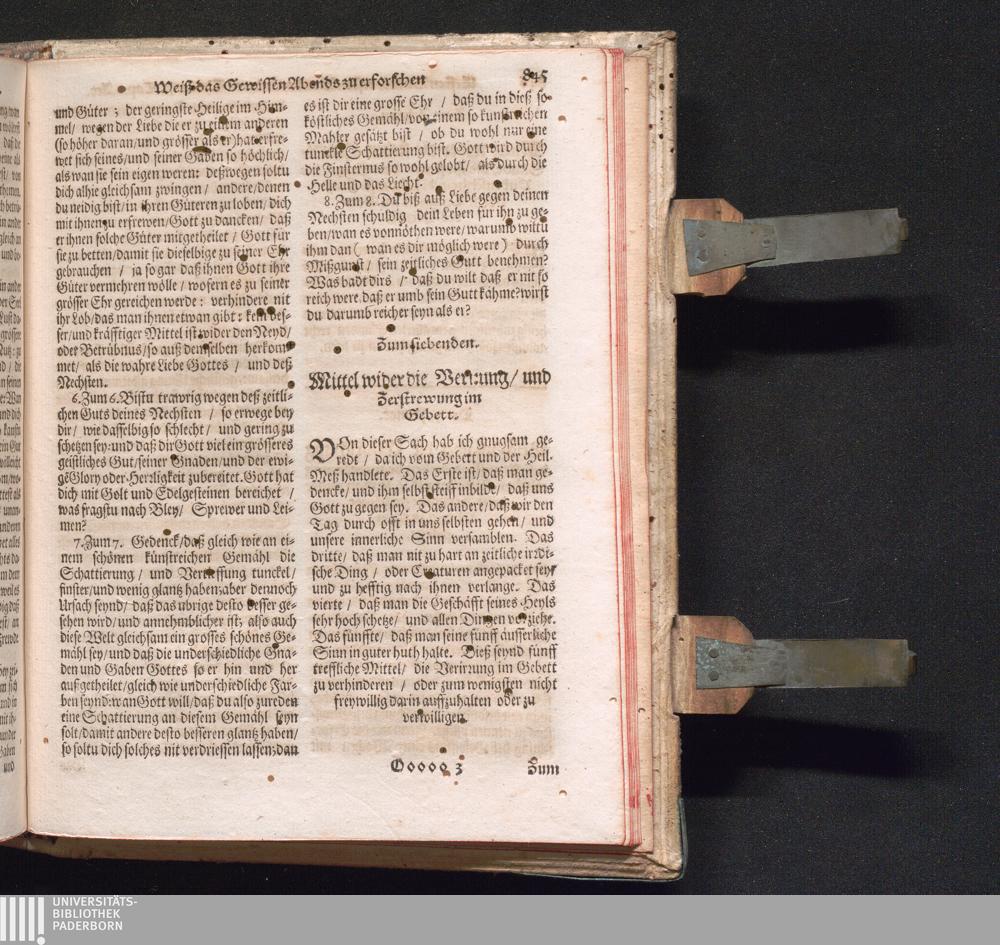 Weiß das Gewissen Abends zu erforschen
845
und Güter; der geringste Heilige im Him-
mel/ wegen der Liebe die er zu einem anderen
(so höher daran/und grösser als er) hat/erfre-
wet sich seines/und seiner Gaben so höchlich/
als wan sie sein eigen weren: deßwegen soltu
dich alhie gleichsam zwingen / andere/denen
du neidig bist/in ihren Güteren zu loben/dich
mit ihnen zu erfrewen/Gott zu dancken/ daß
er ihnen solche Güter mitgetheilet / Gott für
sie zu betten/damit sie dieselbige zu seiner Ehr
gebrauchen / ja so gar daß ihnen Gott ihre
Güter vermehren wölle / wofern es zu seiner
grösser Ehr gereichen werde: verhindere nit
ihr Lob/das man ihnen etwan gibt: kein bes-
ser/und kräfftiger Mittel ist wider den Neyd/
oder Betrübnus/so auß demselben herkom-
met/ als die wahre Liebe Gottes / und deß
Nechsten.
6. Zum 6. Bistu trawrig wegen deß zeitli-
chen Guts deines Nechsten / so erwege bey
dir/ wie dasselbig so schlecht/ und gering zu
schetzen sey: und daß dir Gott viel ein grösseres
geistliches Gut/seiner Gnaden/und der ewi-
gẽ Glory oder Herrligkeit zubereitet. Gott hat
dich mit Golt und Edelgesteinen bereichet /
was fragstu nach Bley/ Sprewer und Lei-
men?
7. Zum 7. Gedenck/daß gleich wie an ei-
nem schönen künstreichen Gemähl die
Schattierung/ und Vertieffung tunckel/
finster/und wenig glantz haben: aber dennoch
Ursach seynd/ daß das übrige desto besser ge-
sehen wird/und annehmblicher ist; also auch
diese Welt gleichsam ein grosses schönes Ge-
mähl sey/und daß die underschiedliche Gna-
den und Gaben Gottes so er hin und her
außgetheilet/gleich wie underschiedliche Far-
ben seynd: wan Gott will/daß du also zu reden
eine Schattierung an diesem Gemähl seyn
solt/damit andere desto besseren glantz haben/
so soltu dich solches nit verdriessen lassen: dan
es ist dir eine grosse Ehr / daß du in dieß so
köstliches Gemähl/von einem so kunstreichen
Mahler gesätzt bist / ob du wohl nur eine
tunckle Schattierung bist. Gott wird durch
die Finsternus so wohl gelobt/ als durch die
Helle und das Liecht.
8. Zum 8. Du biß auß Liebe gegen deinen
Nechsten schuldig dein Leben für ihn zu ge-
ben/wan es vonnöthen were/warumb wiltu
ihm dan (wan es dir möglich were) durch
Mißgunst / sein zeitliches Gutt benehmen?
Was badt dirs / daß du wilt daß er nit so
reich were/daß er umb sein Gutt kähme? wirst
du darumb reicher seyn als er?
Zum siebenden.
Mittel wider die Verirrung/ und
Zerstrewung im
Gebett.
VOn dieser Sach hab ich gnugsam ge-
redt / da ich vom Gebett und der Heil.
Meß handlete. Das Erste ist/ daß man ge-
dencke/ und ihm selbst steiff inbilde/ daß uns
Gott zu gegen sey. Das andere/daß wir den
Tag durch offt in uns selbsten gehen/ und
unsere innerliche Sinn versamblen. Das
dritte/ daß man nit zu hart an zeitliche irrdi-
sche Ding / oder Creaturen angepacket sey/
und zu hefftig nach ihnen verlange. Das
vierte / daß man die Geschäfft seines Heyls
sehr hoch schetze/ und allen Dingen vorziehe.
Das fünffte/ daß man seine fünff äusserliche
Sinn in guter huth halte. Dieß seynd fünff
treffliche Mittel/ die Verirrung im Gebett
zu verhinderen / oder zum wenigsten nicht
freywillig darin auffzuhalten oder zu
verwilligen.
Ooooo 3
Zum
UNIVERSITÄTS-
BIBLIOTHEK
PADERBORN